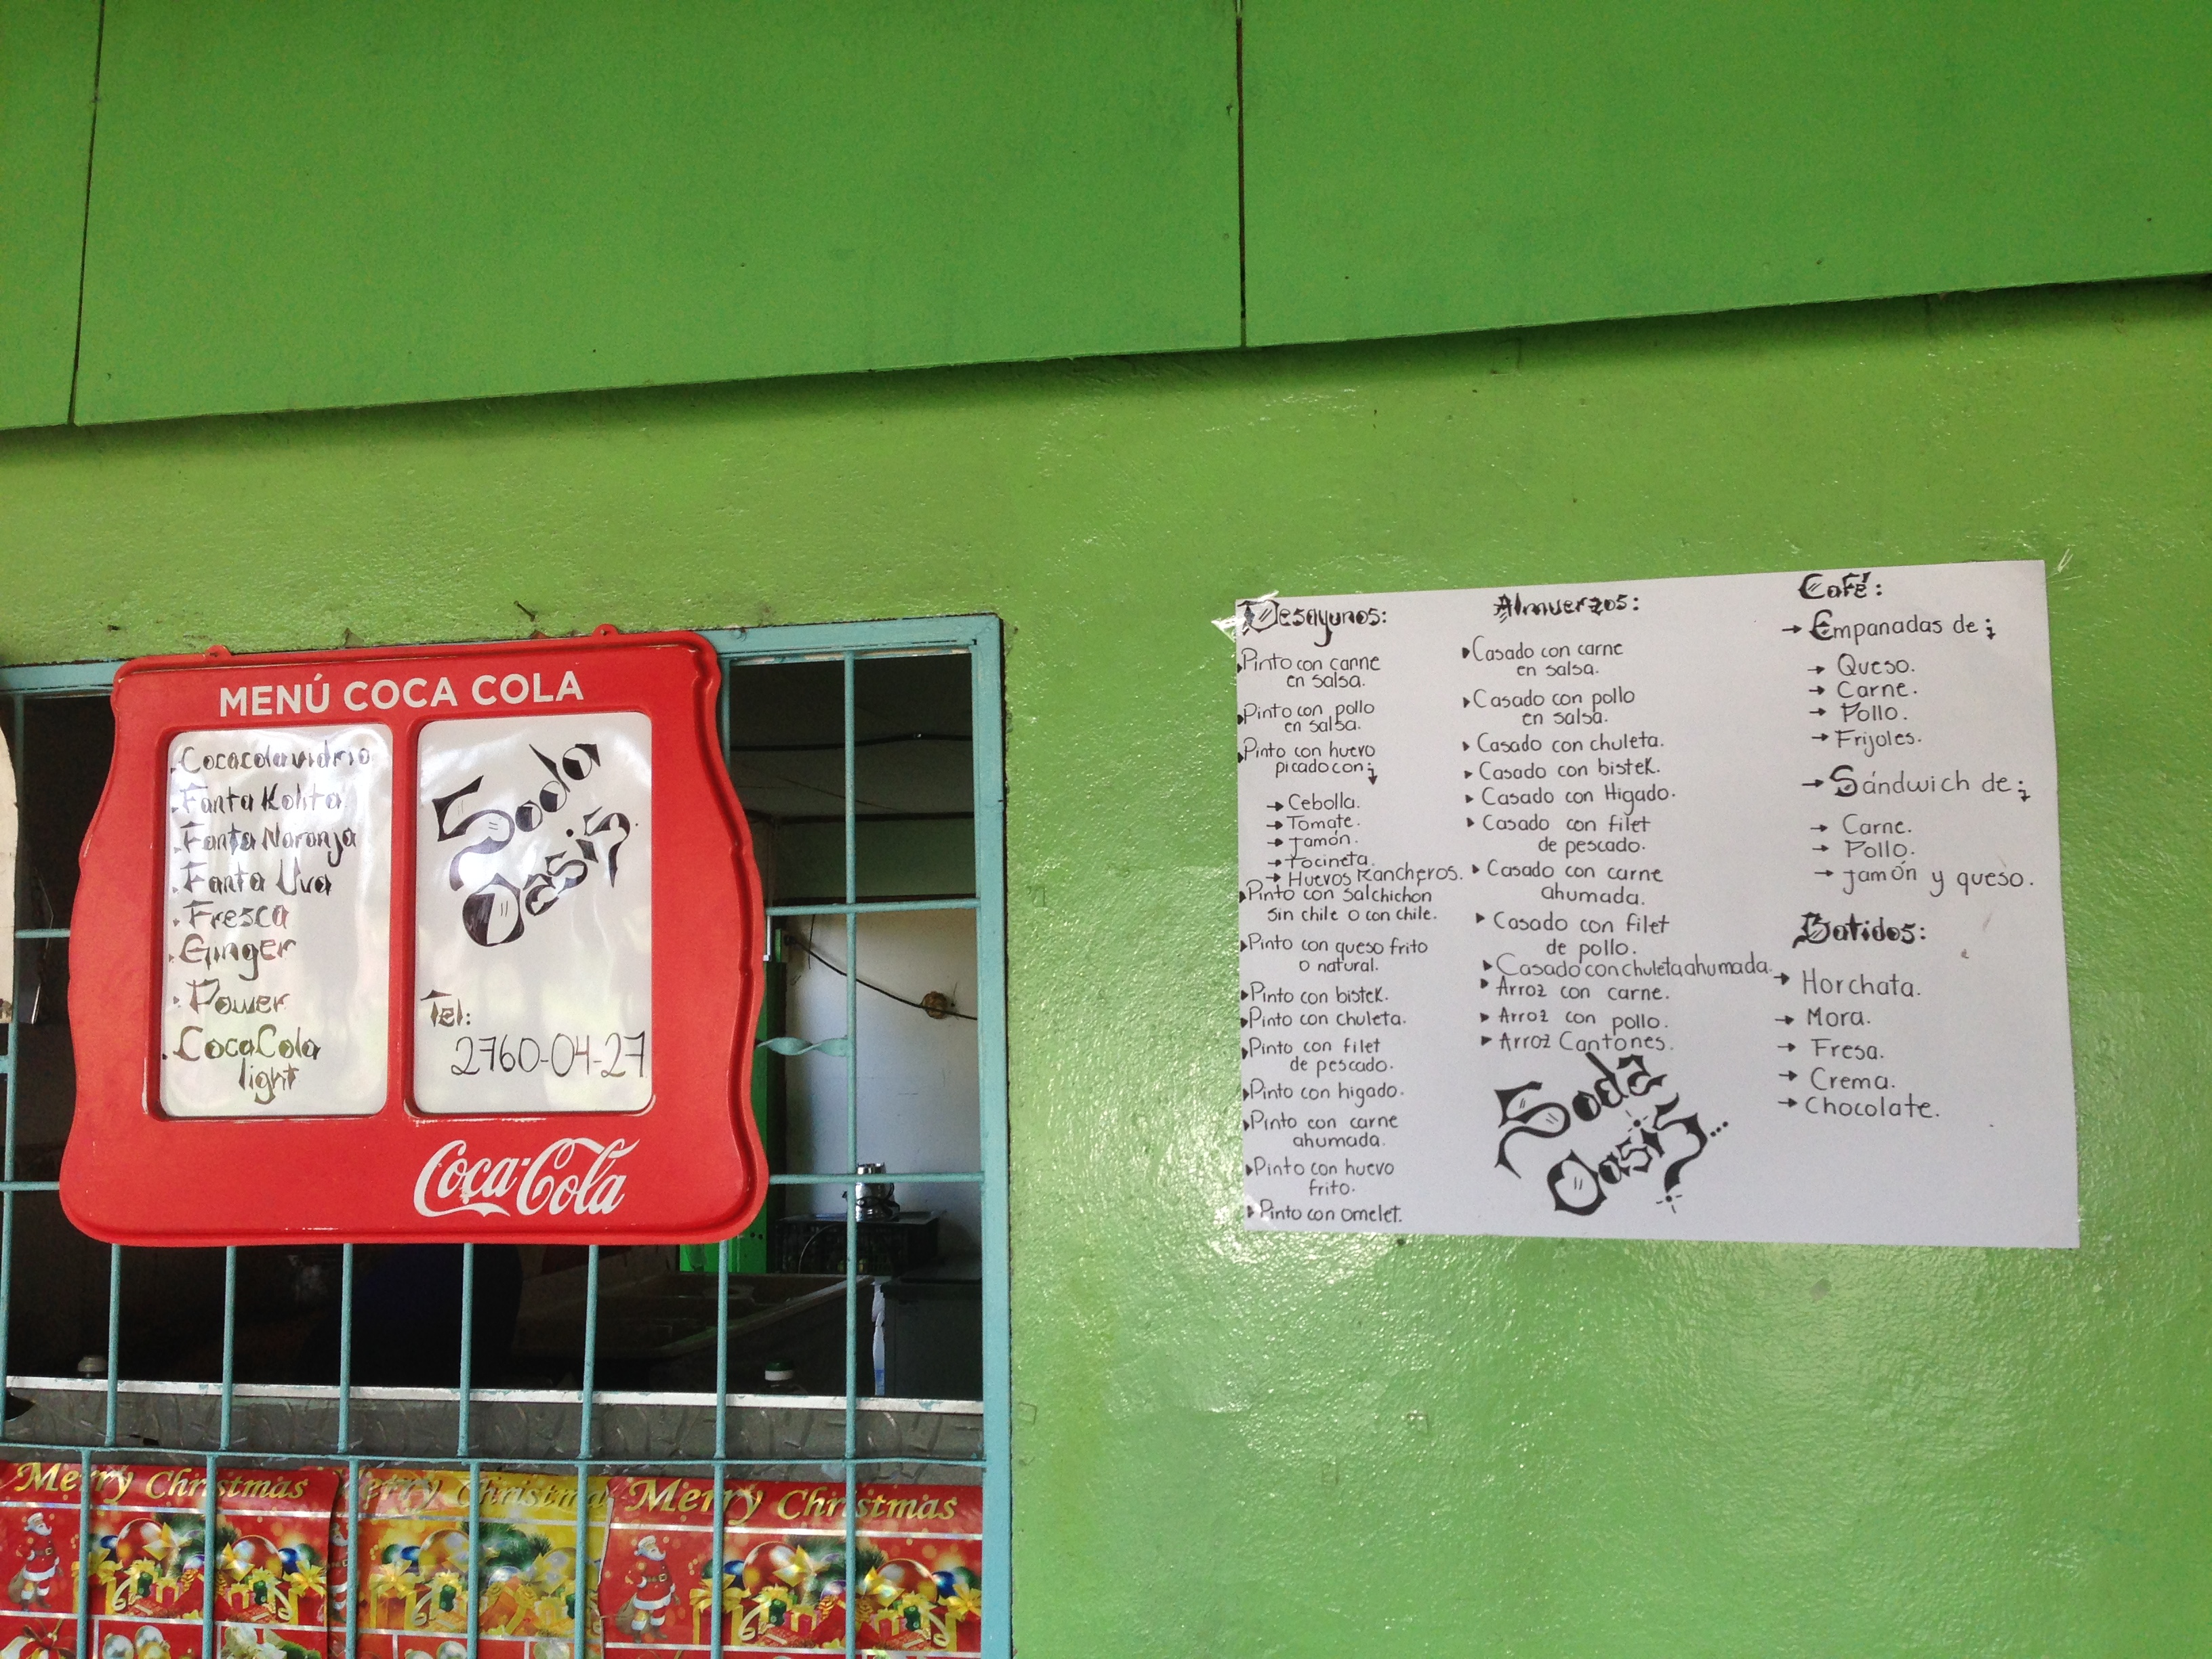 MENÚ COCA COLA
Cocacola vidrio
Fanta Kolita
Fanta Naranja
Fanta Uva
Fresca
Ginger
Power
CocaCola
light
Soda
Oasis
Tel:
2760-04-27
Coca-Cola
Merry Christmas
Merry Christmas
Merry Christmas
Desayunos:
Pinto con carne
en salsa.
Pinto con pollo
en salsa.
Pinto con huevo
picado con:
Cebolla.
Tomate.
Jamón.
Tocineta.
Huevos Rancheros.
Pinto con Salchichon
sin chile o con chile.
Pinto con queso frito
o natural.
Pinto con bistek.
Pinto con chuleta.
Pinto con filet
de pescado.
Pinto con higado.
Pinto con carne
ahumada.
Pinto con huevo
frito.
Pinto con omelet.
Almuerzos:
Casado con carne
en salsa.
Casado con pollo
en salsa.
Casado con chuleta.
Casado con bistek.
Casado con Higado.
Casado con filet
de pescado.
Casado con carne
ahumada.
Casado con filet
de pollo.
Casado con chuleta ahumada.
Arroz con carne.
Arroz con pollo.
Arroz Cantones.
Soda
Oasis...
Café:
Empanadas de:
Queso.
Carne.
Pollo.
Frijoles.
Sándwich de:
Carne.
Pollo.
Jamón y queso.
Batidos:
Horchata.
Mora.
Fresa.
Crema.
Chocolate.